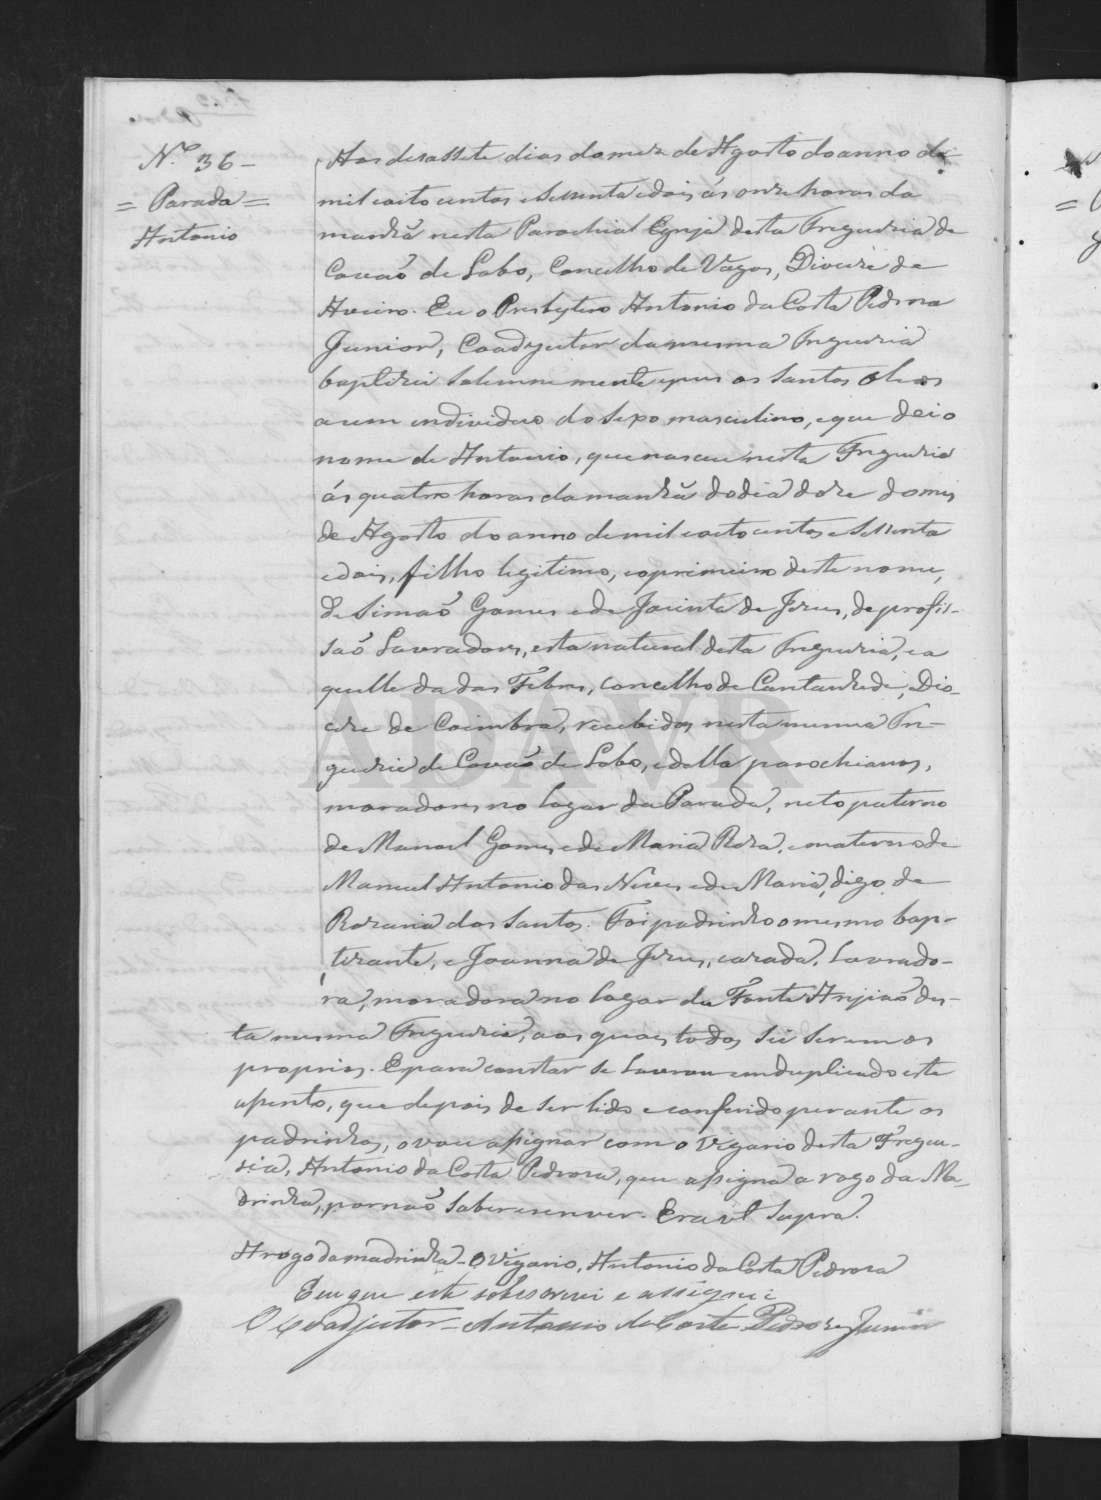 N.º 36 -
= Parada =
Antonio
Aos desassete dias do mez de Agosto do anno de
mil e oito centos e Sessenta e dois, ás onze horas da
manhã nesta Parochial Egreja desta Freguezia de
Covaõ de Lobo, Concelho de Vagos, Diocese de
Aveiro. Eu o Presbytero Antonio da Costa Pedrosa
Junior, Coadjutor da mesma Freguezia
baptizei Solemnemente e puz os Santos Oleos
a um individuo do Sexo masculino, e que dei o
nome de Antonio, que nasceu nesta Freguezia
ás quatro horas da manhã do dia doze do mez
de Agosto do anno de mil e oito centos e Sessenta
e dois, filho legitimo, e o primeiro deste nome,
de Simaõ Gomes e de Jacinta de Jesus, de profis-
saõ Lavradores, esta natural desta Freguezia, e a
quelle da das Febres, concelho de Cantanhede, Dio-
cese de Coimbra, recebidos nesta mesma Fre-
guezia de Covaõ de Lobo, e della parochianos,
moradores no lugar da Parada, neto paterno
de Manoel Gomes e de Maria Roza, e materno de
Manuel Antonio das Neves e de Maria, digo de
Rozaria dos Santos. Foi padrinho o mesmo bap-
tizante, e Joanna de Jesus, casada, Lavrado-
ra, moradora no lugar da Fonte Anjiaõ des-
ta mesma Freguezia, aos quaes todos sei serem os
proprios. E para constar se lavrou em duplicado este
assento, que depois de ser lido e conferido perante os
padrinhos, o vou assignar com o Vigario desta Fregue-
sia, Antonio da Costa Pedrosa, que assigna a rogo da Ma-
drinha, por naõ saber escrever. Era ut Supra.
A rogo da madrinha - O Vigario, Antonio da Costa Pedrosa
E eu que este sobescrevi e assignei
O Coadjutor - Antonio da Costa Pedrosa Junior
ADAVR